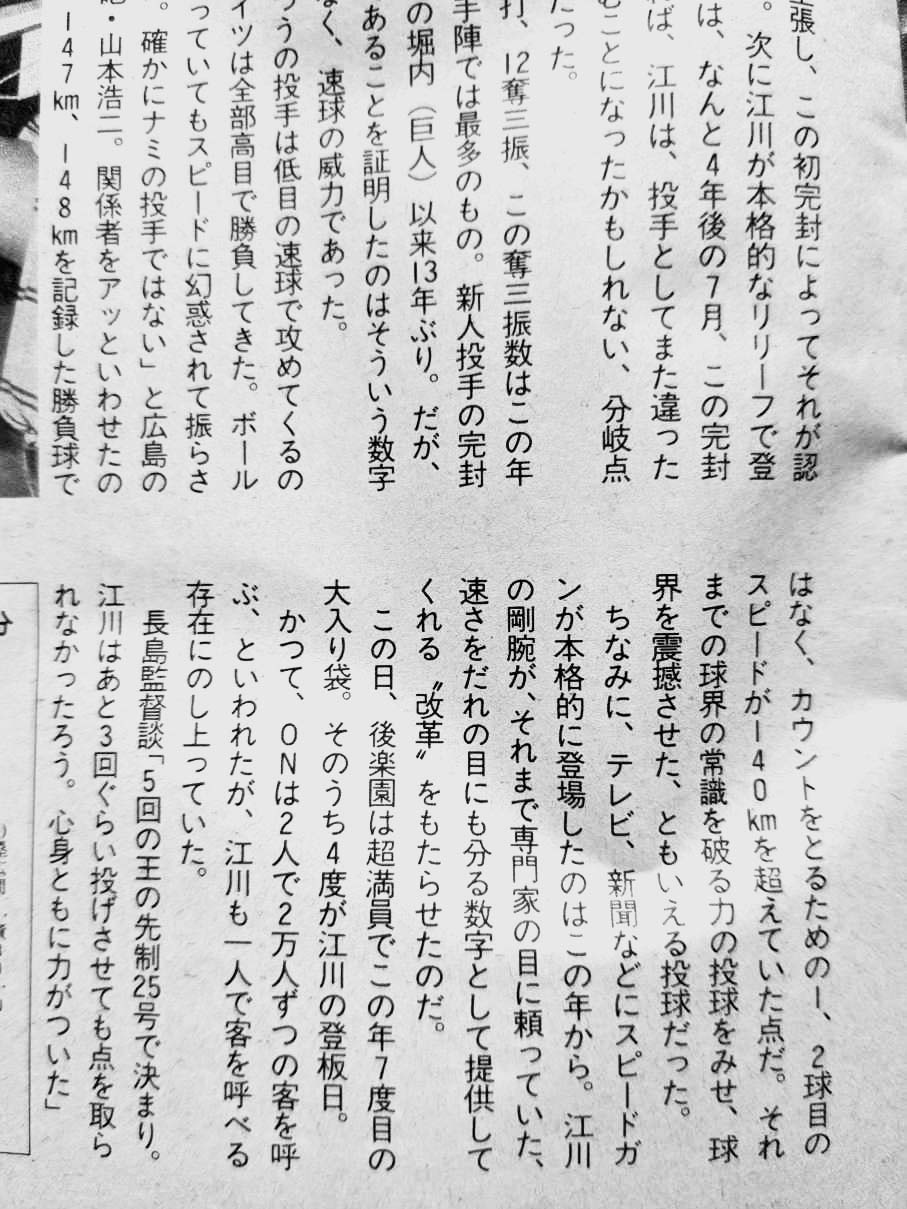 張し、この初完封によってそれが認
。次に江川が本格的なリリーフで登
は、なんと4年後の7月、この完封
れば、江川は、投手としてまた違った
むことになったかもしれない、分岐点
だった。
打、12奪三振、この奪三振数はこの年
手陣では最多のもの。新人投手の完封
の堀内（巨人）以来13年ぶり。だが、
あることを証明したのはそういう数字
なく、速球の威力であった。
ろうの投手は低目の速球で攻めてくるの
イツは全部高目で勝負してきた。ボール
っていてもスピードに幻惑されて振らさ
。確かにナミの投手ではない」と広島の
・山本浩二。関係者をアッといわせたの
147km、148kmを記録した勝負球で
はなく、カウントをとるための1、2球目の
スピードが140kmを超えていた点だ。それ
までの球界の常識を破る力の投球をみせ、球
界を震撼させた、ともいえる投球だった。
ちなみに、テレビ、新聞などにスピードガ
ンが本格的に登場したのはこの年から。江川
の剛腕が、それまで専門家の目に頼っていた、
速さをだれの目にも分る数字として提供して
くれる〝改革〟をもたらせたのだ。
この日、後楽園は超満員でこの年7度目の
大入り袋。そのうち4度が江川の登板日。
かつて、ONは2人で2万人ずつの客を呼
ぶ、といわれたが、江川も一人で客を呼べる
存在にのし上っていた。
長島監督談「5回の王の先制25号で決まり。
江川はあと3回ぐらい投げさせても点を取ら
れなかったろう。心身ともに力がついた」